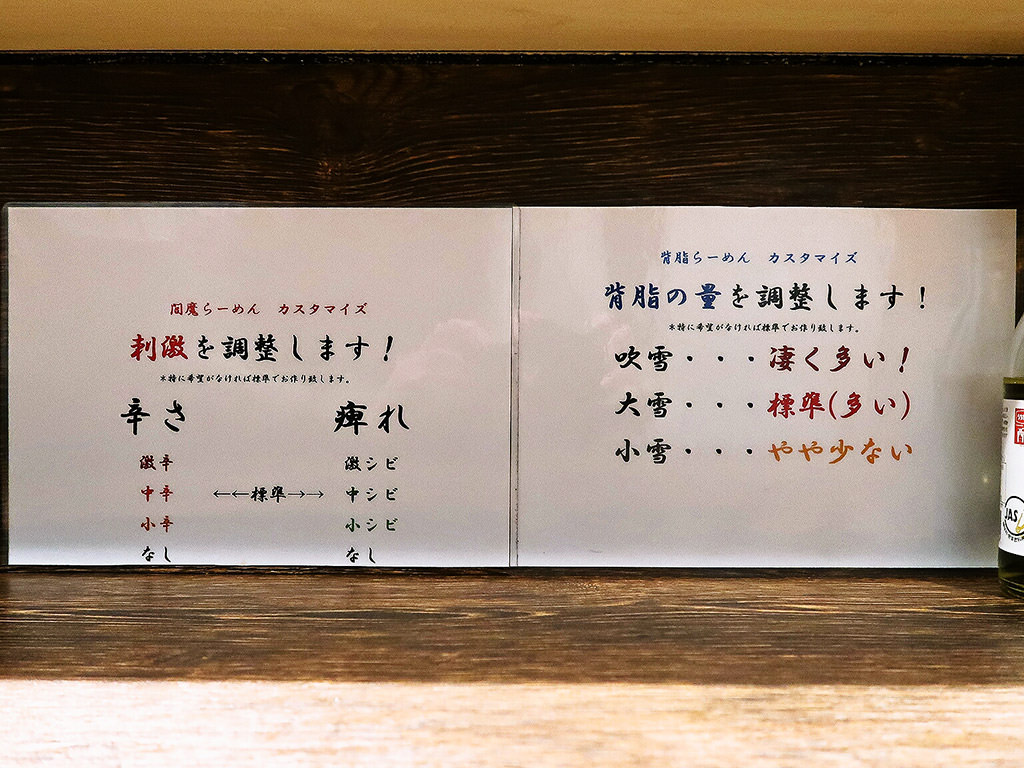 閻魔らーめん カスタマイズ
刺激を調整します!
*特に希望がなければ標準でお作り致します。
辛さ 痺れ
激辛 激シビ
中辛 ←←標準→→ 中シビ
小辛 小シビ
なし なし
背脂らーめん カスタマイズ
背脂の量を調整します!
*特に希望がなければ標準でお作り致します。
吹雪・・・凄く多い!
大雪・・・標準(多い)
小雪・・・やや少ない
JAS